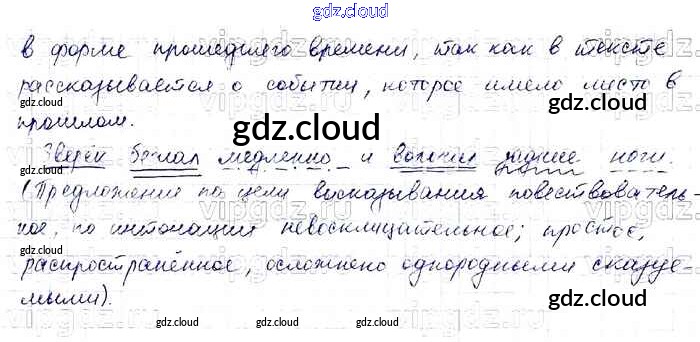 gdz.cloud
в форме прошедшего времени, так как в тексте
рассказывается о событии, которое имело место в
gdz.cloud gdz.cloud
прошлом.
gdz.cloud
gdz.cloud gdz.cloud
Зверёк бежал медленно и волочил задние ноги.
(Предложение по цели высказывания повествователь-
ное, по интонации невосклицательное; простое,
gdz.cloud
распространённое, осложнено однородными сказуе-
мыми).
gdz.cloud
gdz.cloud gdz.cloud gdz.cloud